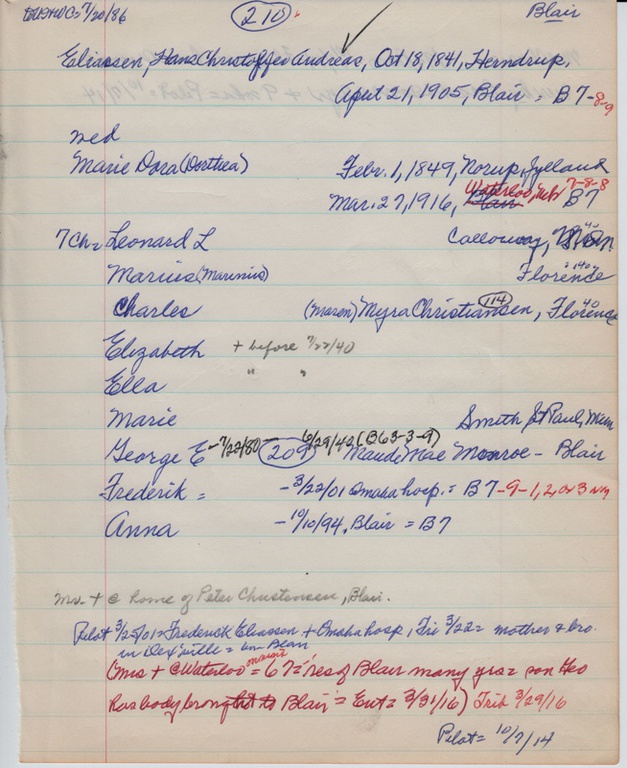 7/20/86 210 Blair
Eliassen, Hans Christoffer Andreas, Oct 18, 1841, Herndrup,
April 21, 1905, Blair = B7-8-9
wed
Marie Dora (Dorthea) Febr. 1, 1849, Norup, Jylland
Mar. 27, 1916, Blair Waterloo, Neb B7 7-8-8
7Ch= Leonard L Calloway, 40
Marius (Marinius) Florence =1940=
Charles (Maren) Myra Christiansen, 114 Florence 40
Elizabeth + before 7/22/40
Ella " "
Marie Smith St Paul, Minn
George E -7/22/80 209 6/29/42 (B63-3-9) Maude Mae Monroe - Blair
Frederik = -3/22/01 Omaha hosp. = B7-9-1, 2, or 3 NM
Anna -10/10/94, Blair = B7
Mr. + @ home of Peter Christensen, Blair.
Pilot 3/25/01= Frederick Eliassen + Omaha hosp, Fri 3/22= mother & bro.
in = un- Blair
(Mrs + @ Waterloo = 67= res of Blair many yrs= son Geo
has body brought to Blair = Ent= 3/31/16) Trib 3/29/16
Pilot= 10/7/14